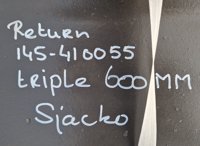 Return
145-410055
triple 600 MM
Sjacko